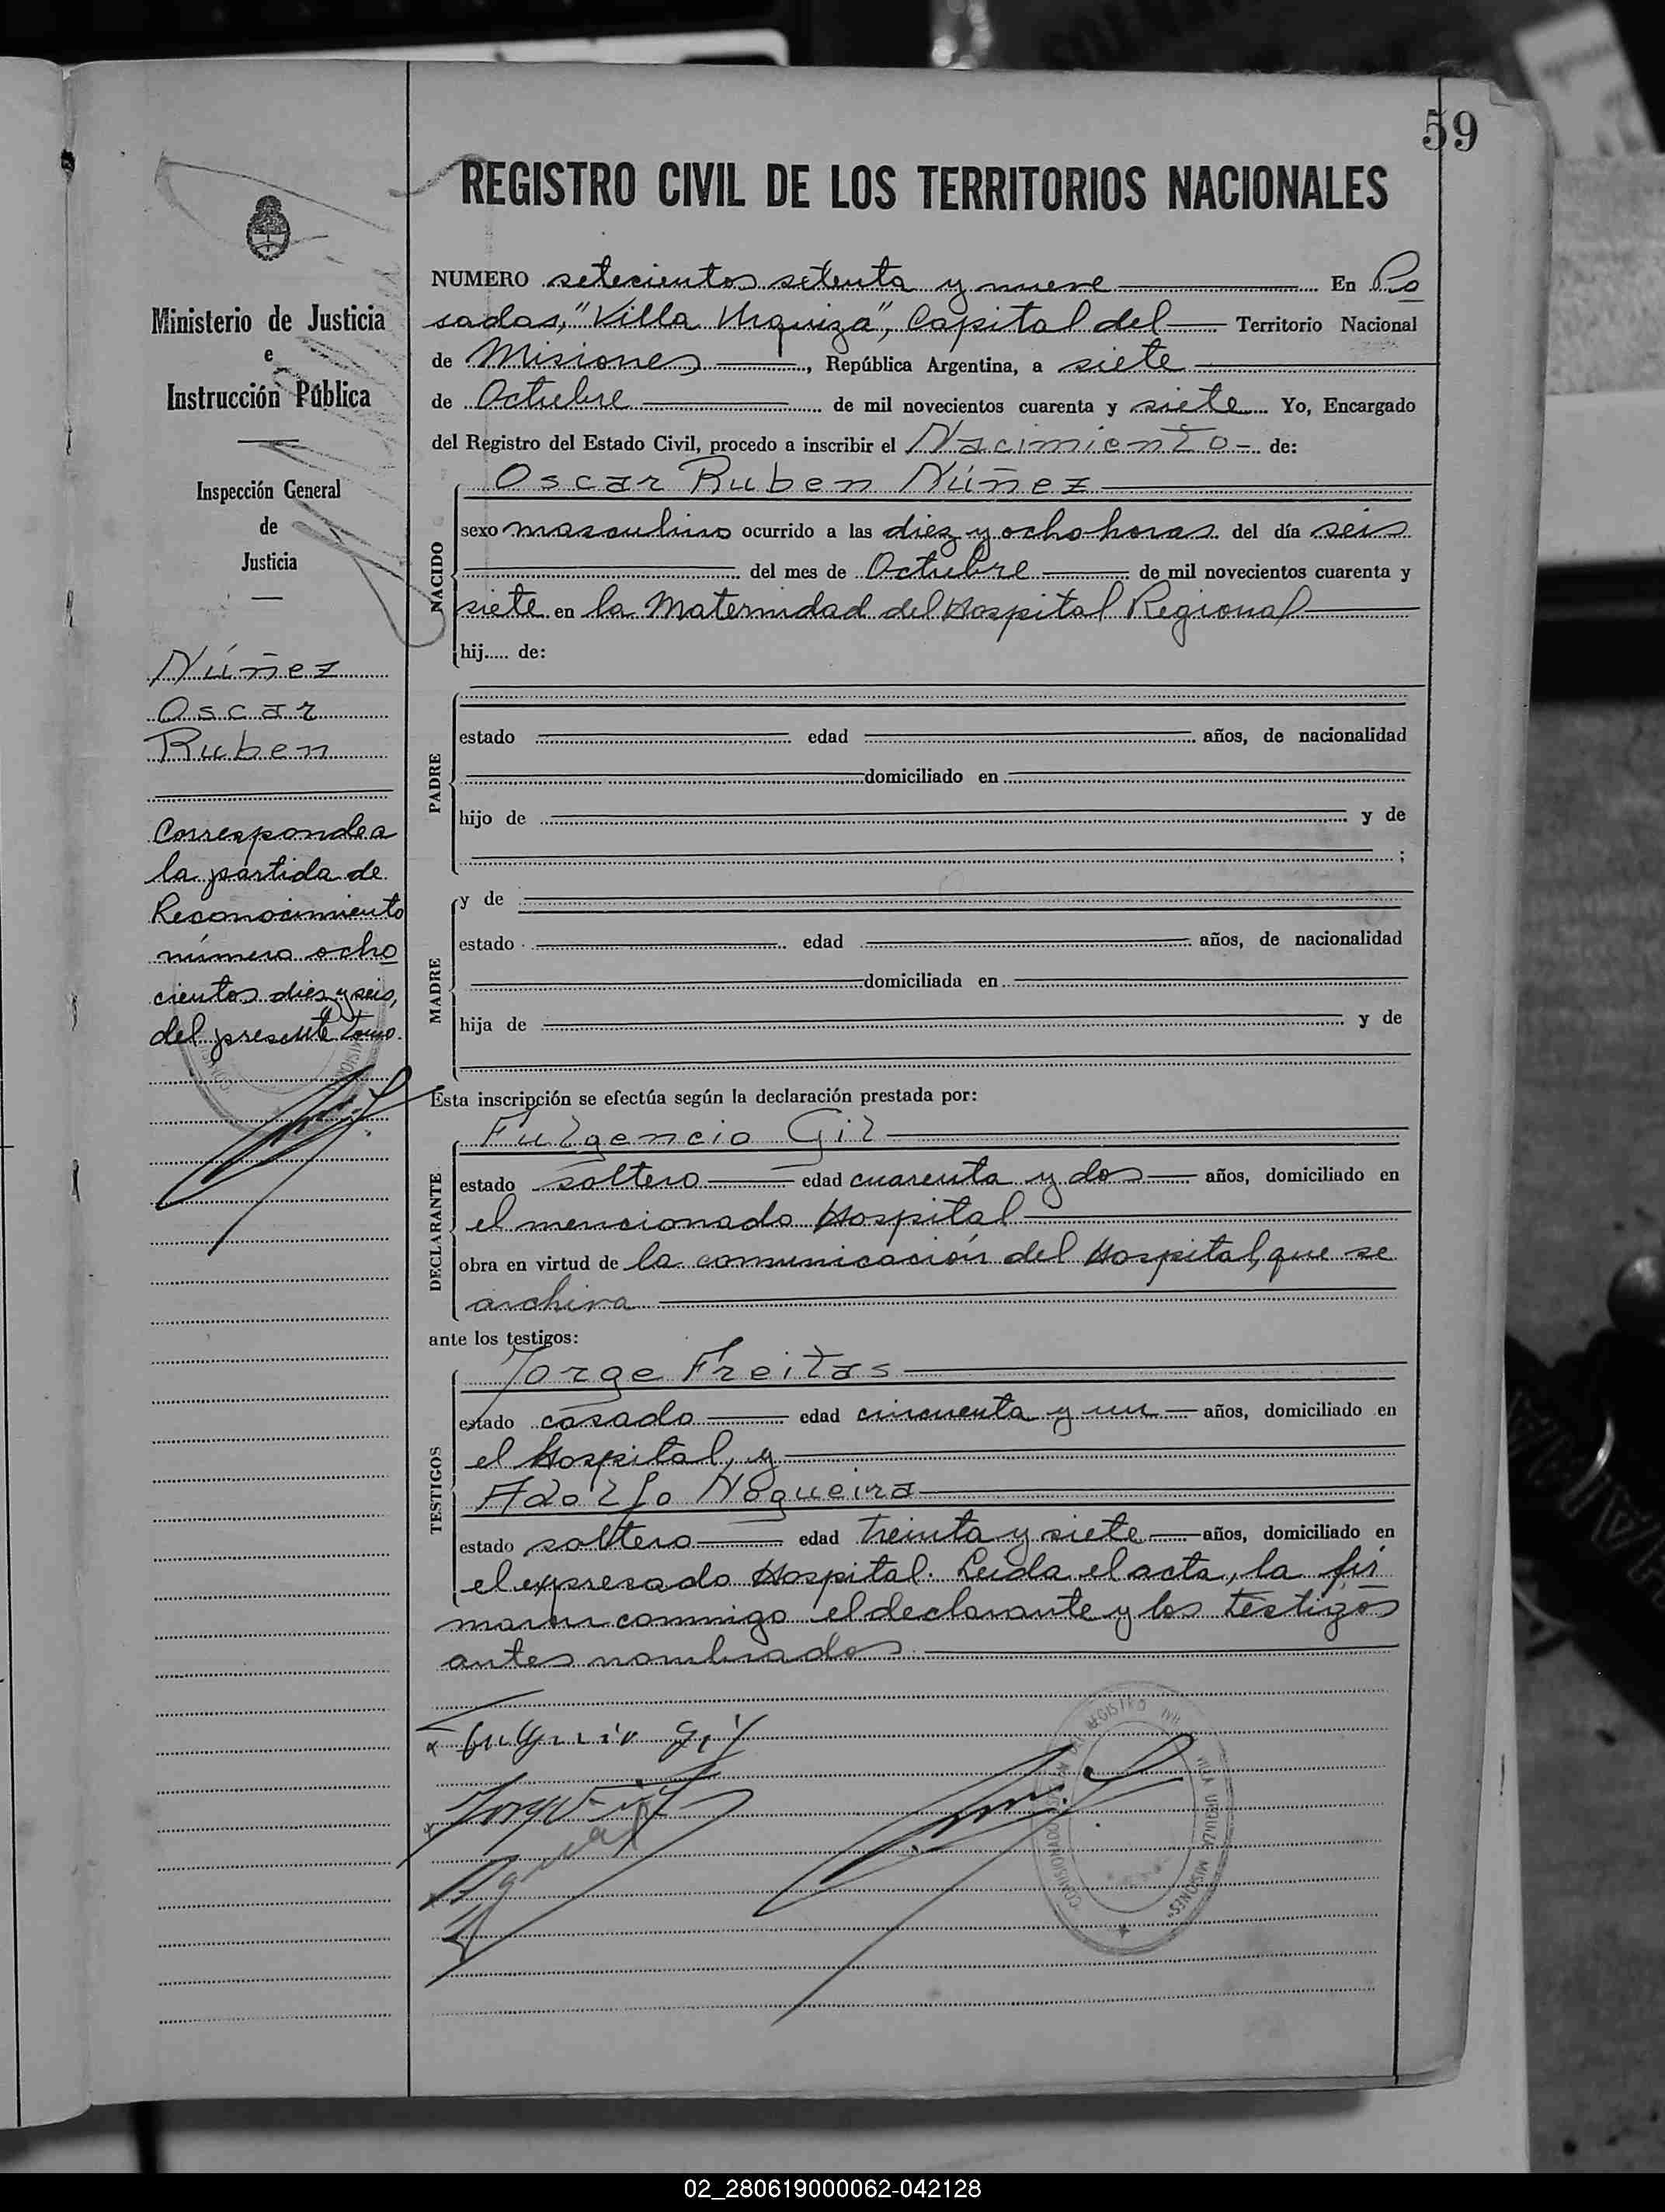 59
REGISTRO CIVIL DE LOS TERRITORIOS NACIONALES
Ministerio de Justicia
e
Instrucción Pública
Inspección General
de
Justicia
Núñez
Oscar
Ruben
Corresponde a
la partida de
Reconocimiento
número ocho
cientos diez y seis,
del presente tomo.
NUMERO setecientos setenta y nueve En Po
sadas, "Villa Urquiza", Capital del Territorio Nacional
de Misiones, República Argentina, a siete
de Octubre de mil novecientos cuarenta y siete Yo, Encargado
del Registro del Estado Civil, procedo a inscribir el Nacimiento - de:
Oscar Ruben Núñez
NACIDO
sexo masculino ocurrido a las diez y ocho horas del día seis
del mes de Octubre de mil novecientos cuarenta y
siete en la Maternidad del Hospital Regional
hij..... de:
PADRE
estado edad años, de nacionalidad
domiciliado en
hijo de y de
;
MADRE
y de
estado edad años, de nacionalidad
domiciliada en
hija de y de
Esta inscripción se efectúa según la declaración prestada por:
DECLARANTE
Fulgencio Gil
estado soltero edad cuarenta y dos años, domiciliado en
el mencionado Hospital
obra en virtud de la comunicación del Hospital, que se
archiva
ante los testigos:
TESTIGOS
Jorge Freitas
estado casado edad cincuenta y un años, domiciliado en
el Hospital, y
Adolfo Nogueira
estado soltero edad treinta y siete años, domiciliado en
el expresado Hospital. Leída el acta, la fir
maron conmigo el declarante y los testigos
antes nombrados
Fulgencio Gil
REGISTRO CIVIL VILLA URQUIZA MISIONES
02_280619000062-042128